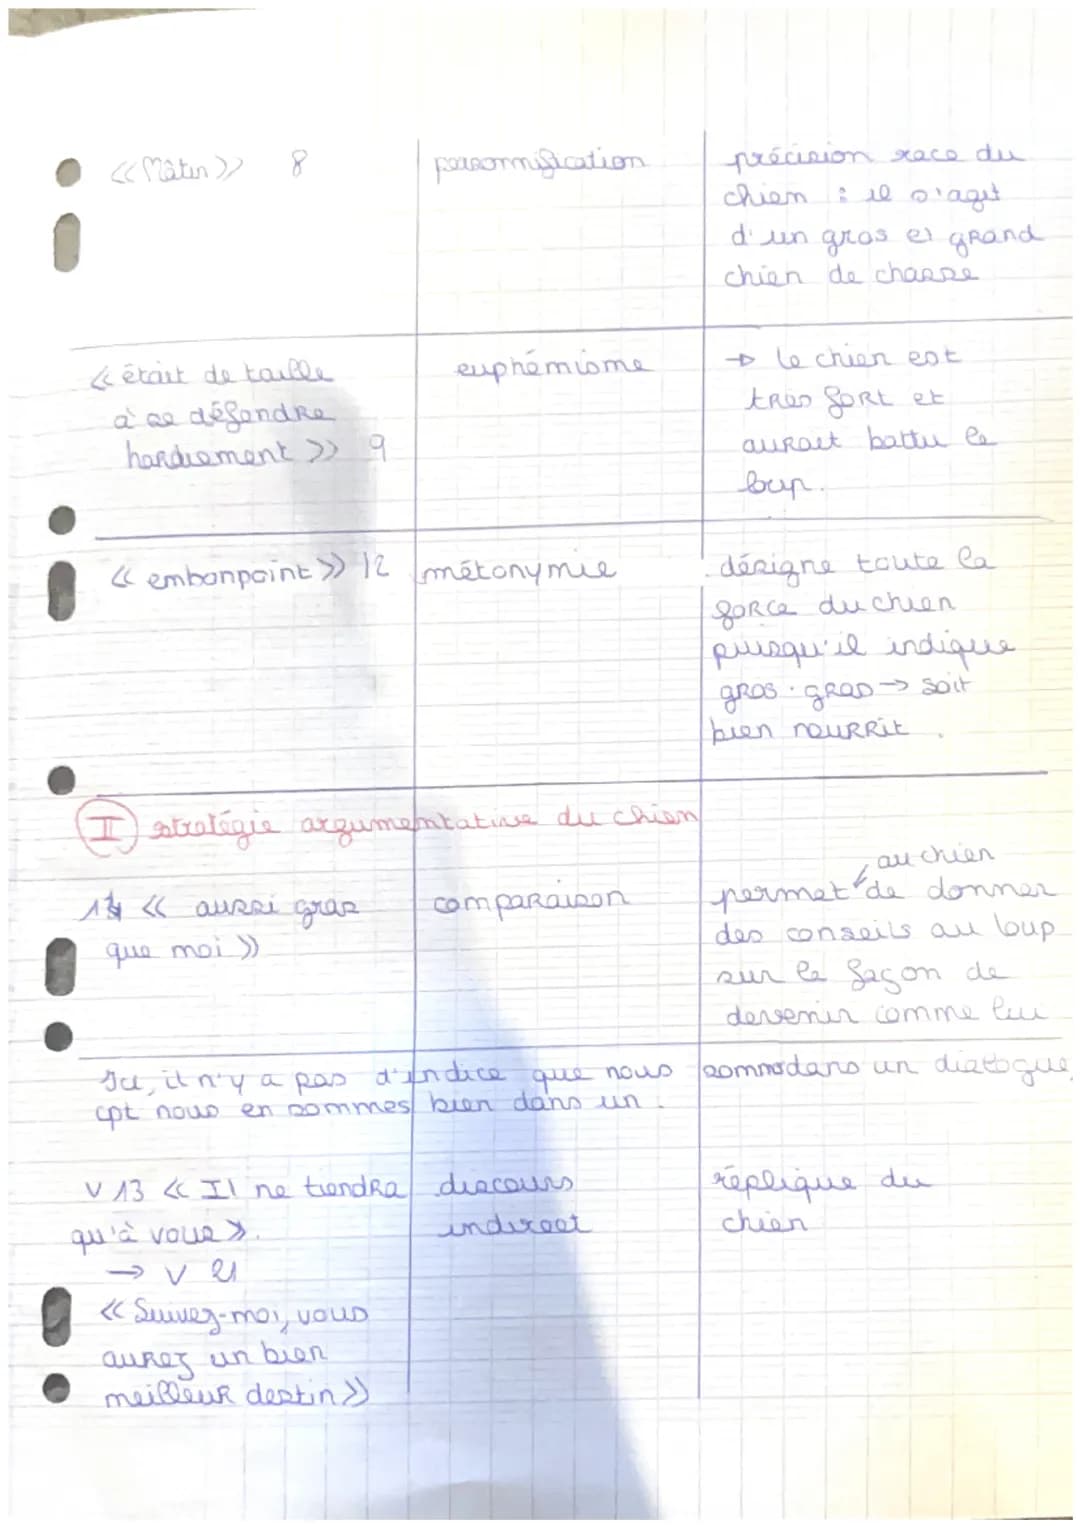 « Mâtin » 8
personnification
précision race du
chien : il s'agit
d'un gros et grand
chien de chasse
« était de taille
à se défendre
hardiement » 9
euphémisme
→ le chien est
très fort et
aurait battu le
loup.
« embonpoint » 12
métonymie
désigne toute la
force du chien
puisqu'il indique
gros. gras → soit
bien nourrit.
II stratégie argumentative du chien
14 « aussi gras
que moi »
comparaison
au chien
permet de donner
des conseils au loup
sur la façon de
devenir comme lui
Ici, il n'y a pas d'indice que nous sommes dans un dialogue,
cpt nous en sommes bien dans un.
V 13 « Il ne tiendra
qu'à vous ».
→ V 21
« Suivez-moi, vous
aurez un bien
meilleur destin »
discours
indirect
réplique du
chien